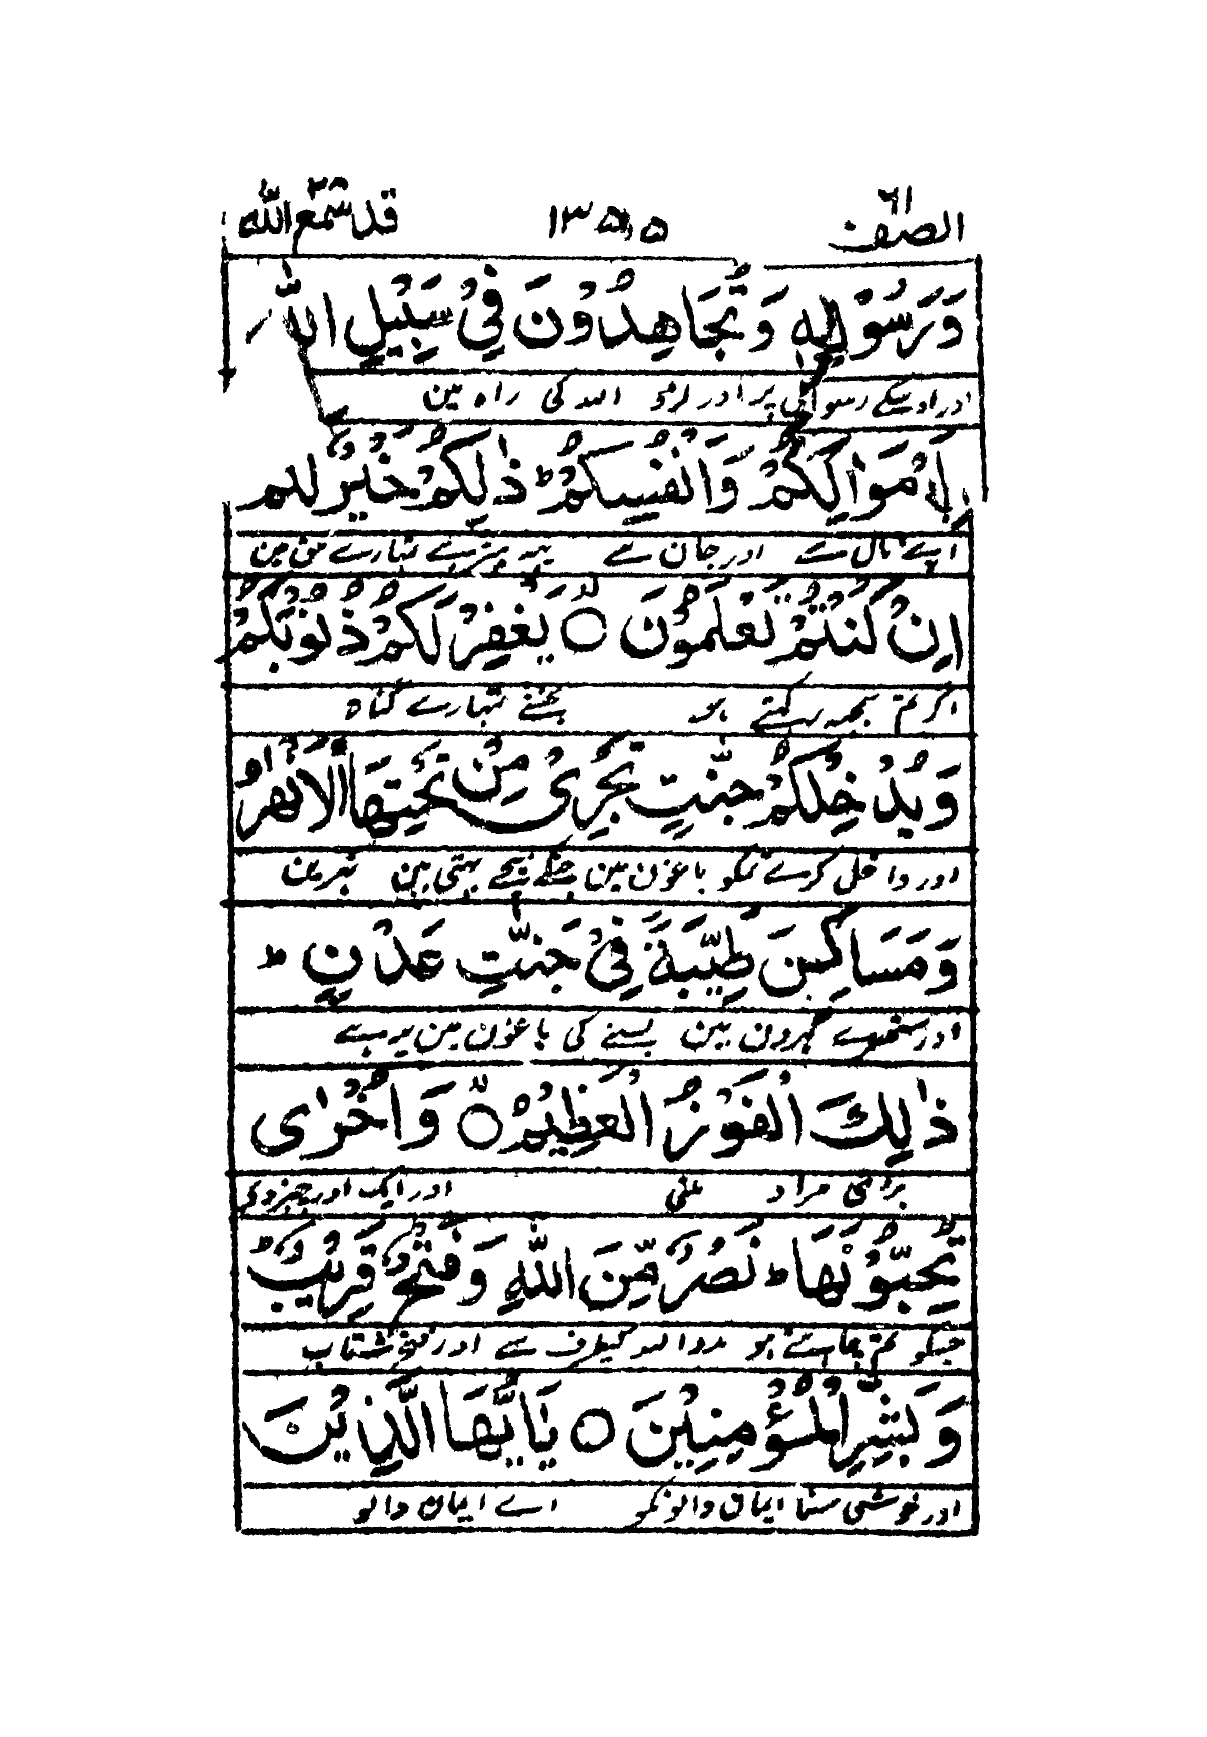 الصّف ٦١ ١٣٥٥ قد سمع الله ٢٨
وَرَسُوْلِهٖ وَ تُجَاهِدُوْنَ فِيْ سَبِيْلِ اللّٰهِ
اور اوسکے رسول پر اور لڑو اللہ کی راہ مین
بِاَمْوَالِكُمْ وَاَنْفُسِكُمْ ؕ ذٰلِكُمْ خَيْرٌ لَّكُمْ
اپنے مال سے اور جان سے یہہ بہتر ہے تمہارے حق مین
اِنْ كُنْتُمْ تَعْلَمُوْنَ ۝ يَغْفِرْ لَكُمْ ذُنُوْبَكُمْ
اگر تم سمجہہ رکہتے ہو بخشے تمہارے گناہ
وَيُدْخِلْكُمْ جَنّٰتٍ تَجْرِيْ مِنْ تَحْتِهَا الْاَنْهٰرُ
اور داخل کرے تمکو باغون مین جنکے نیچے بہتی ہین نہرین
وَمَسَاكِنَ طَيِّبَةً فِيْ جَنّٰتِ عَدْنٍ ؕ
اور ستھرے گھرون مین بسنے کی باغون مین یہ ہے
ذٰلِكَ الْفَوْزُ الْعَظِيْمُ ۝ وَاُخْرٰى
بڑی مراد ملنی اور ایک اور چیز دے
تُحِبُّوْنَهَا ؕ نَصْرٌ مِّنَ اللّٰهِ وَفَتْحٌ قَرِيْبٌ ؕ
جسکو تم چاہتے ہو مدد اللہ کیطرف سے اور فتح شتاب
وَبَشِّرِ الْمُؤْمِنِيْنَ ۝ يٰاَيُّهَا الَّذِيْنَ
اور خوشی سنا ایمان والونکو اے ایمان والو